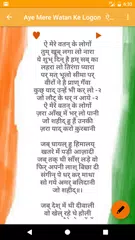 Aye Mere Watan Ke Logon
ऐ मेरे वतन के लोगों
तुम खूब लगा लो नारा
ये शुभ दिन है हम सब का
लहरा लो तिरंगा प्यारा
पर मत भूलो सीमा पर
वीरों ने है प्राण गँवा
कुछ याद उन्हें भी कर लो -२
जो लौट के घर न आये -२
ऐ मेरे वतन के लोगों
ज़रा आँख में भर लो पानी
जो शहीद हुए हैं उनकी
ज़रा याद करो क़ुरबानी
जब घायल हुआ हिमालय
खतरे में पड़ी आज़ादी
जब तक थी साँस लड़े वो
फिर अपनी लाश बिछा दी
संगीन पे धर कर माथा
सो गये अमर बलिदानी
जो शहीद...
जब देश में थी दीवाली
वो खेल रहे थे होली